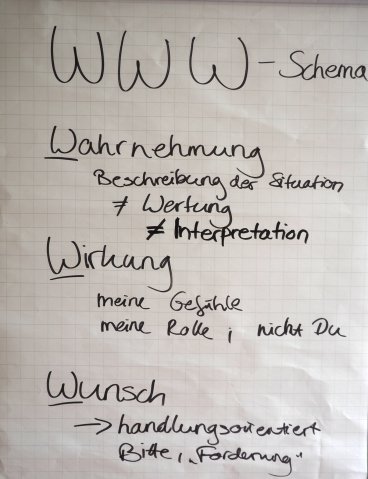 WWW - Schema
Wahrnehmung
Beschreibung der Situation
≠ Wertung
≠ Interpretation
Wirkung
meine Gefühle
meine Rolle ; nicht Du
Wunsch
→ handlungsorientiert
Bitte, „Forderung"